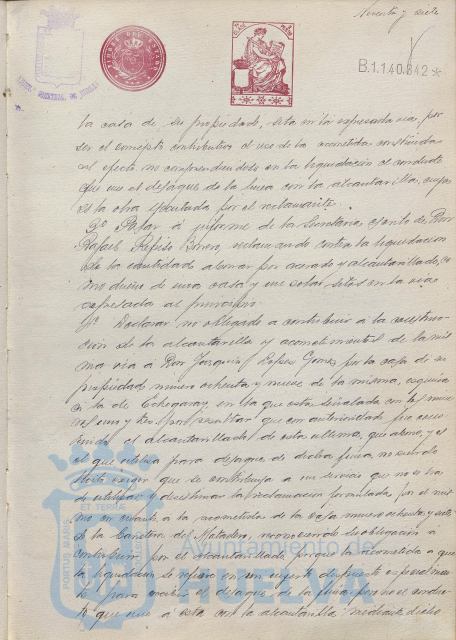 Noventa y siete
B.1.140.842*
la casa de su propiedad, sita en la expresada via, por
ser el concepto contributivo el uso de la acometida construida
al efecto no comprendiendose en la liquidación el conducto
que une el desagüe de la finca con la alcantarilla,
la obra ejecutada por el reclamante.
3º Pasar a informe de la Secretaria, escrito de Don
Rafael reclamando contra la liquidacion
de la cantidad abonar por acerado y alcantarillado, co
mo dueño de una casa y un solar sitos en la via
expresada al principio.
4º Declarar no obligado a contribuir a la construc
ción de la alcantarilla y acometimientos de la mis
ma via a Don Joaquin Lopez Gomez por la casa de su
propiedad número ochenta y nueve de la misma, esquina
a la de Echegaray, en la que esta señalada con el nume
ro uno y tres, por resultar que con anterioridad fue cons
truido el alcantarillado de esta ultima, que abonó, y es
el que utiliza para desagüe de dicha finca, no siendo
justo exigir que se contribuya a un servicio que no se ha
de utilizar y desestimar la reclamacion formulada por el mis
mo en cuanto a la acometida de la casa número ochenta y siete
de la Carretera de Matadero, reconociendo su obligacion a
contribuir por el alcantarillado porque la acometida a que
la liquidacion se refiere es un injerto dispuesto especialmen
te para recibir el desagüe de la finca, pero no el conduc
to que une a esta con la alcantarilla mediante dicho
PORTUS MARIS
ET TERRAE
Ayuntamiento de
HUELVA